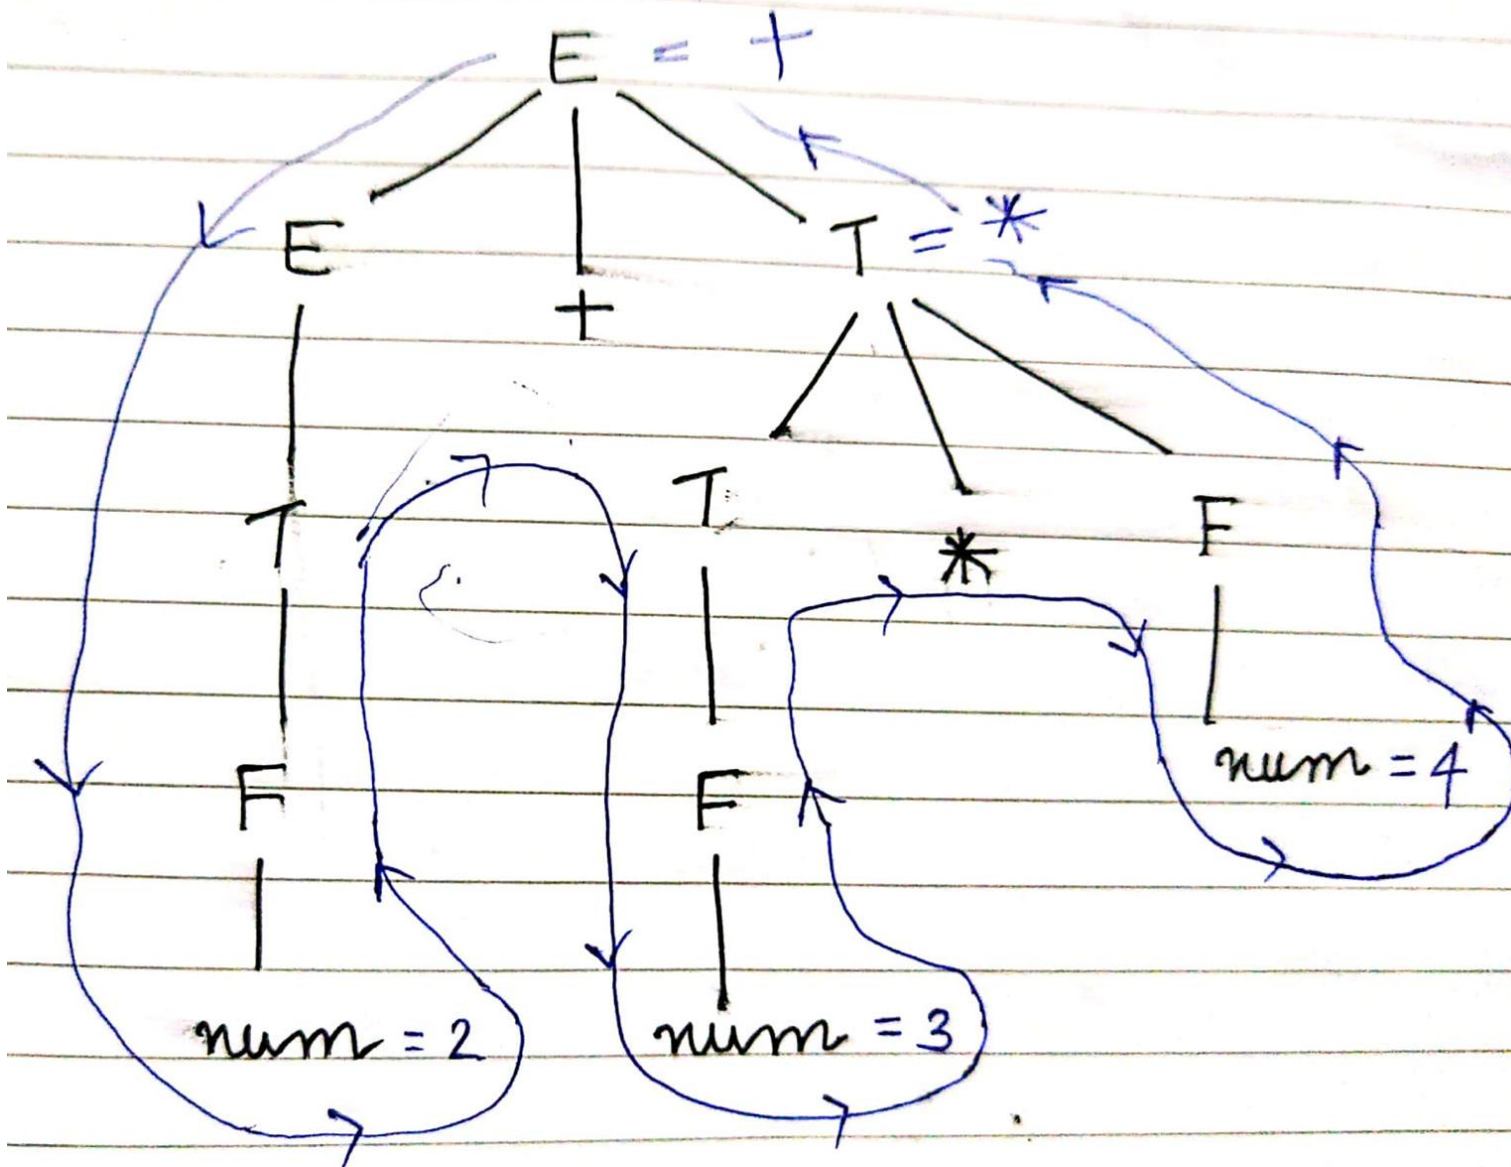 E = +
E + T = *
T T * F
F F num = 4
num = 2 num = 3